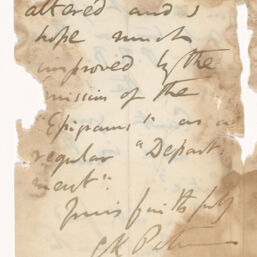 altered and I
hope much
improved by the
omission of the
"Epigrams" as a
regular "Depart-
ment".
Yours faithfully